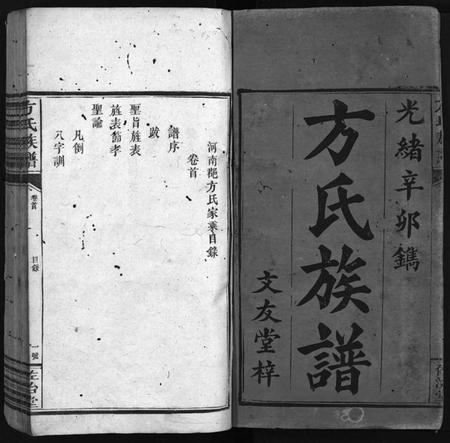 光緒辛卯鐫
方氏族譜
文友堂梓
河南郡方氏家乘目錄
卷首
譜序
跋
聖旨旌表
旌表節孝
聖諭
凡例
八字訓
方氏族譜
卷首
目錄
一號